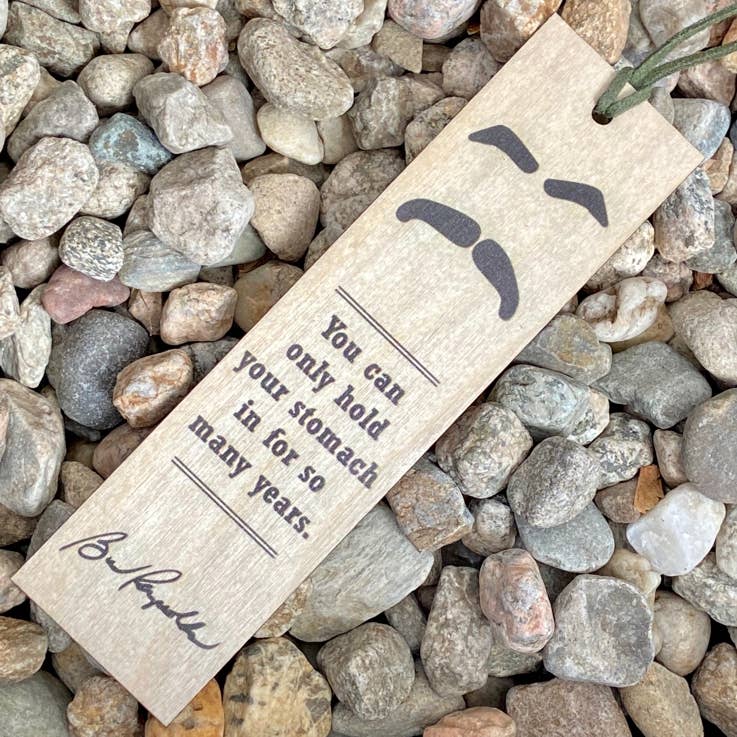 You can
only hold
your stomach
in for so
many years.
Burt Reynolds